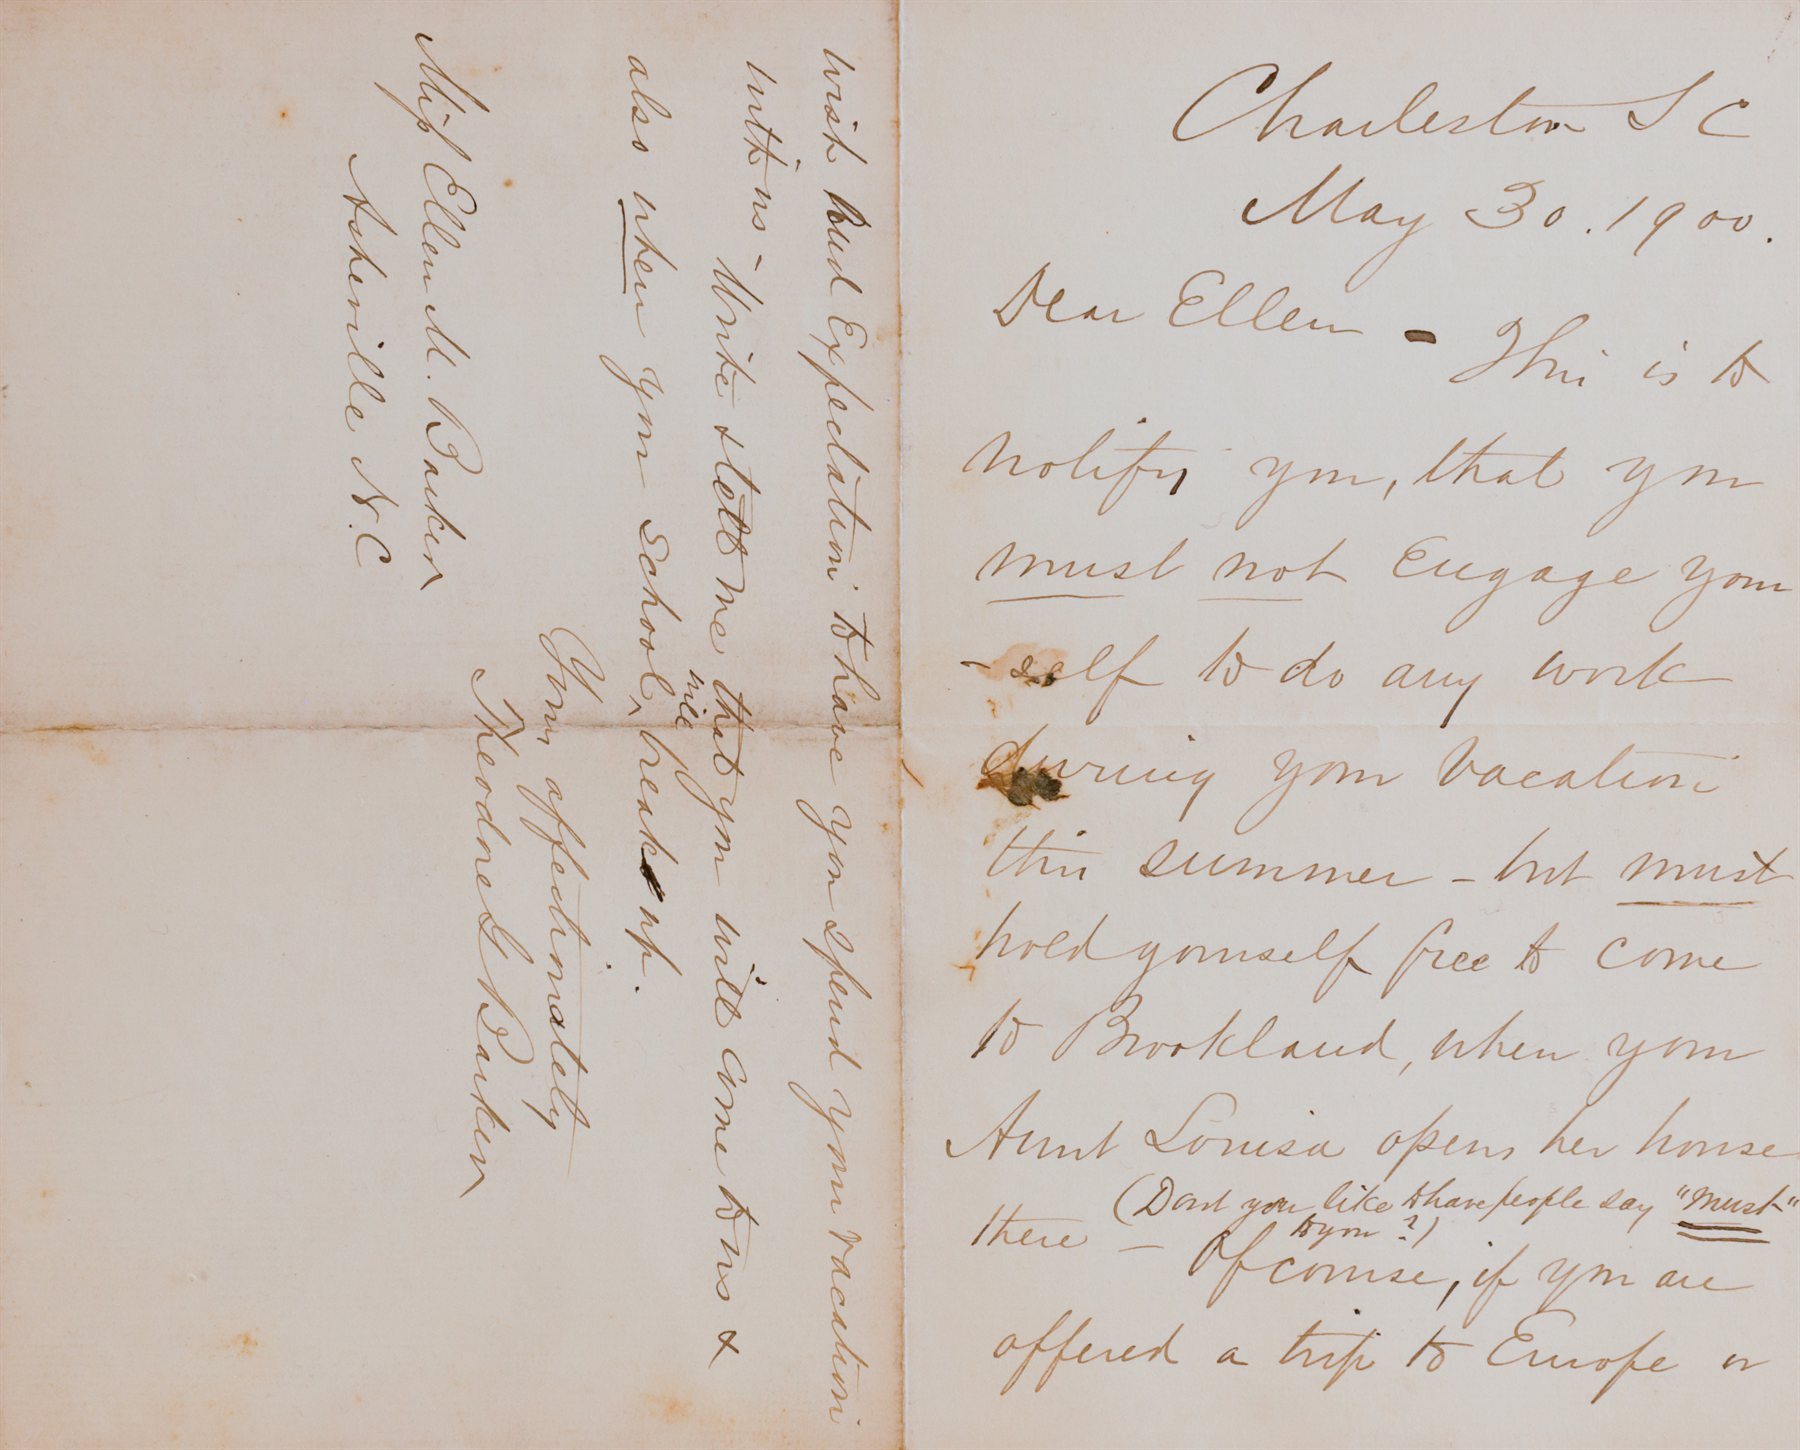 Charleston S C
May 30. 1900.
Dear Ellen - This is to
notify you, that you
must not engage your
- self to do any work
during your vacation
this summer - but must
hold yourself free to come
to Brookland, when your
Aunt Louisa opens her house
(Dont you like to have people say "must"
to you?)
there - Of course, if you are
offered a trip to Europe or
wish and Expectation to have you spend your vacation
with us - Write & tell me that you will come to us &
also when your school, will break up.
Your affectionately
Theodore G Barker
Miss Ellen M. Barker
Asheville N.C